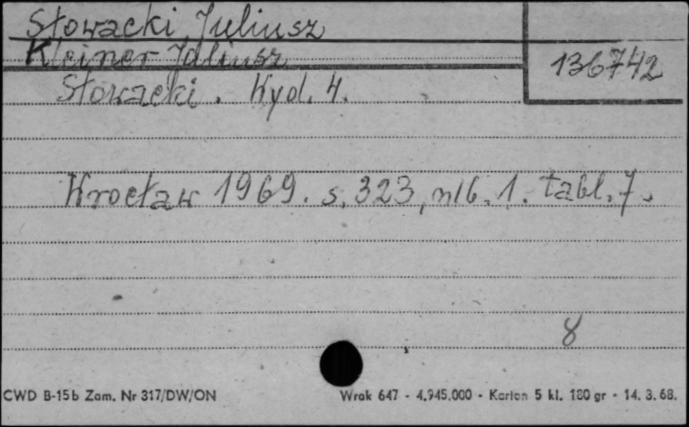 Słowacki, Juliusz
Kleiner Juliusz
136742
Słowacki. Wyd. 4.
Wrocław 1969. s. 323, nlb. 1. tabl. 7.
8
CWD B-15b Zam. Nr 317/DW/ON
Wrak 647 - 4.945.000 - Karton 5 kl. 180 gr - 14. 3. 68.